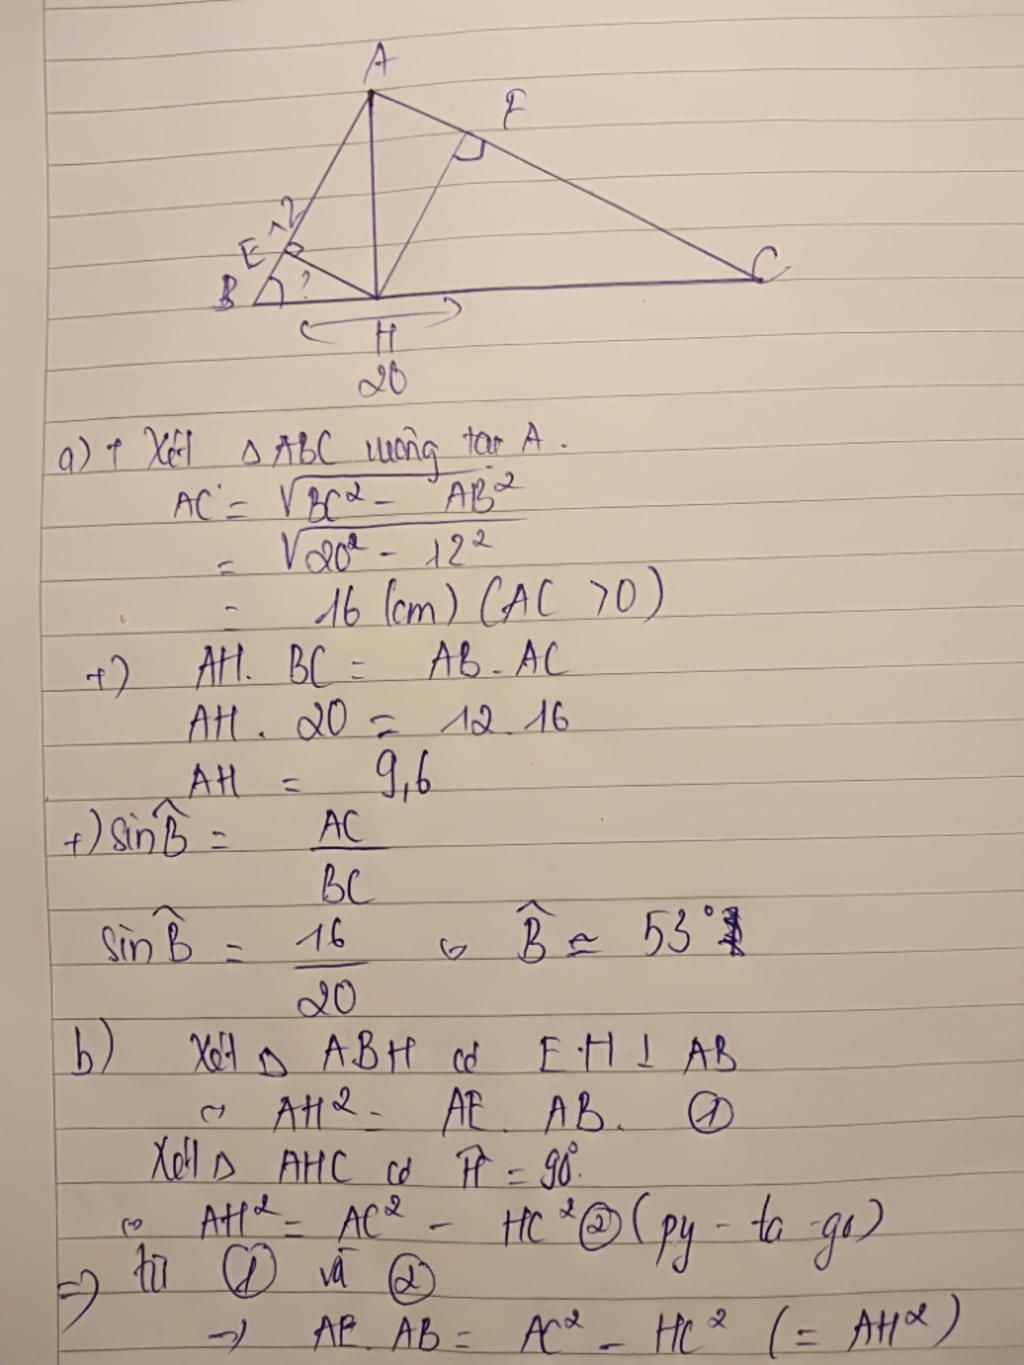 A
F
12
E
B
?
C
H
20
a) + Xét Δ ABC vuông tại A.
AC = √BC² - AB²
= √20² - 12²
= 16 (cm) (AC >0)
+) AH. BC = AB. AC
AH. 20 = 12.16
AH = 9,6
+) sin B̂ = AC/BC
sin B̂ = 16/20 ⇔ B̂ ≈ 53°
b) Xét Δ ABH có EH ⊥ AB
⇔ AH² = AE. AB. ①
Xét Δ AHC có Ĥ = 90°.
⇔ AH² = AC² - HC² ② (py-ta-go)
=> từ ① và ②
→ AE. AB = AC² - HC² (= AH²)